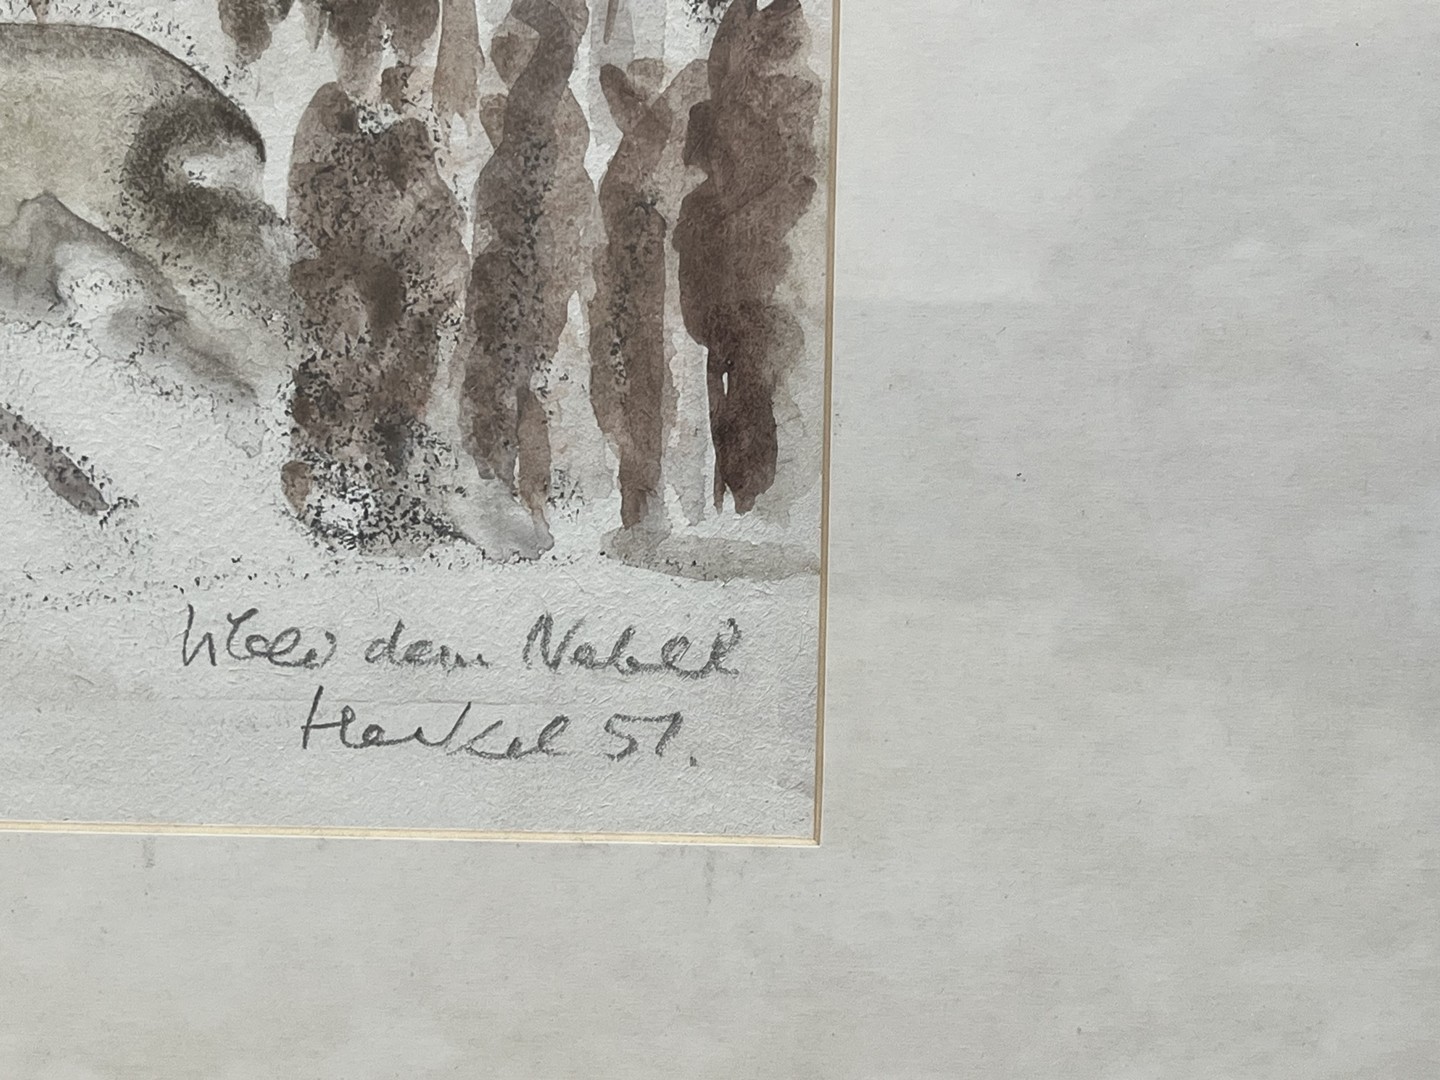 über dem Nebel
Heckel 57.